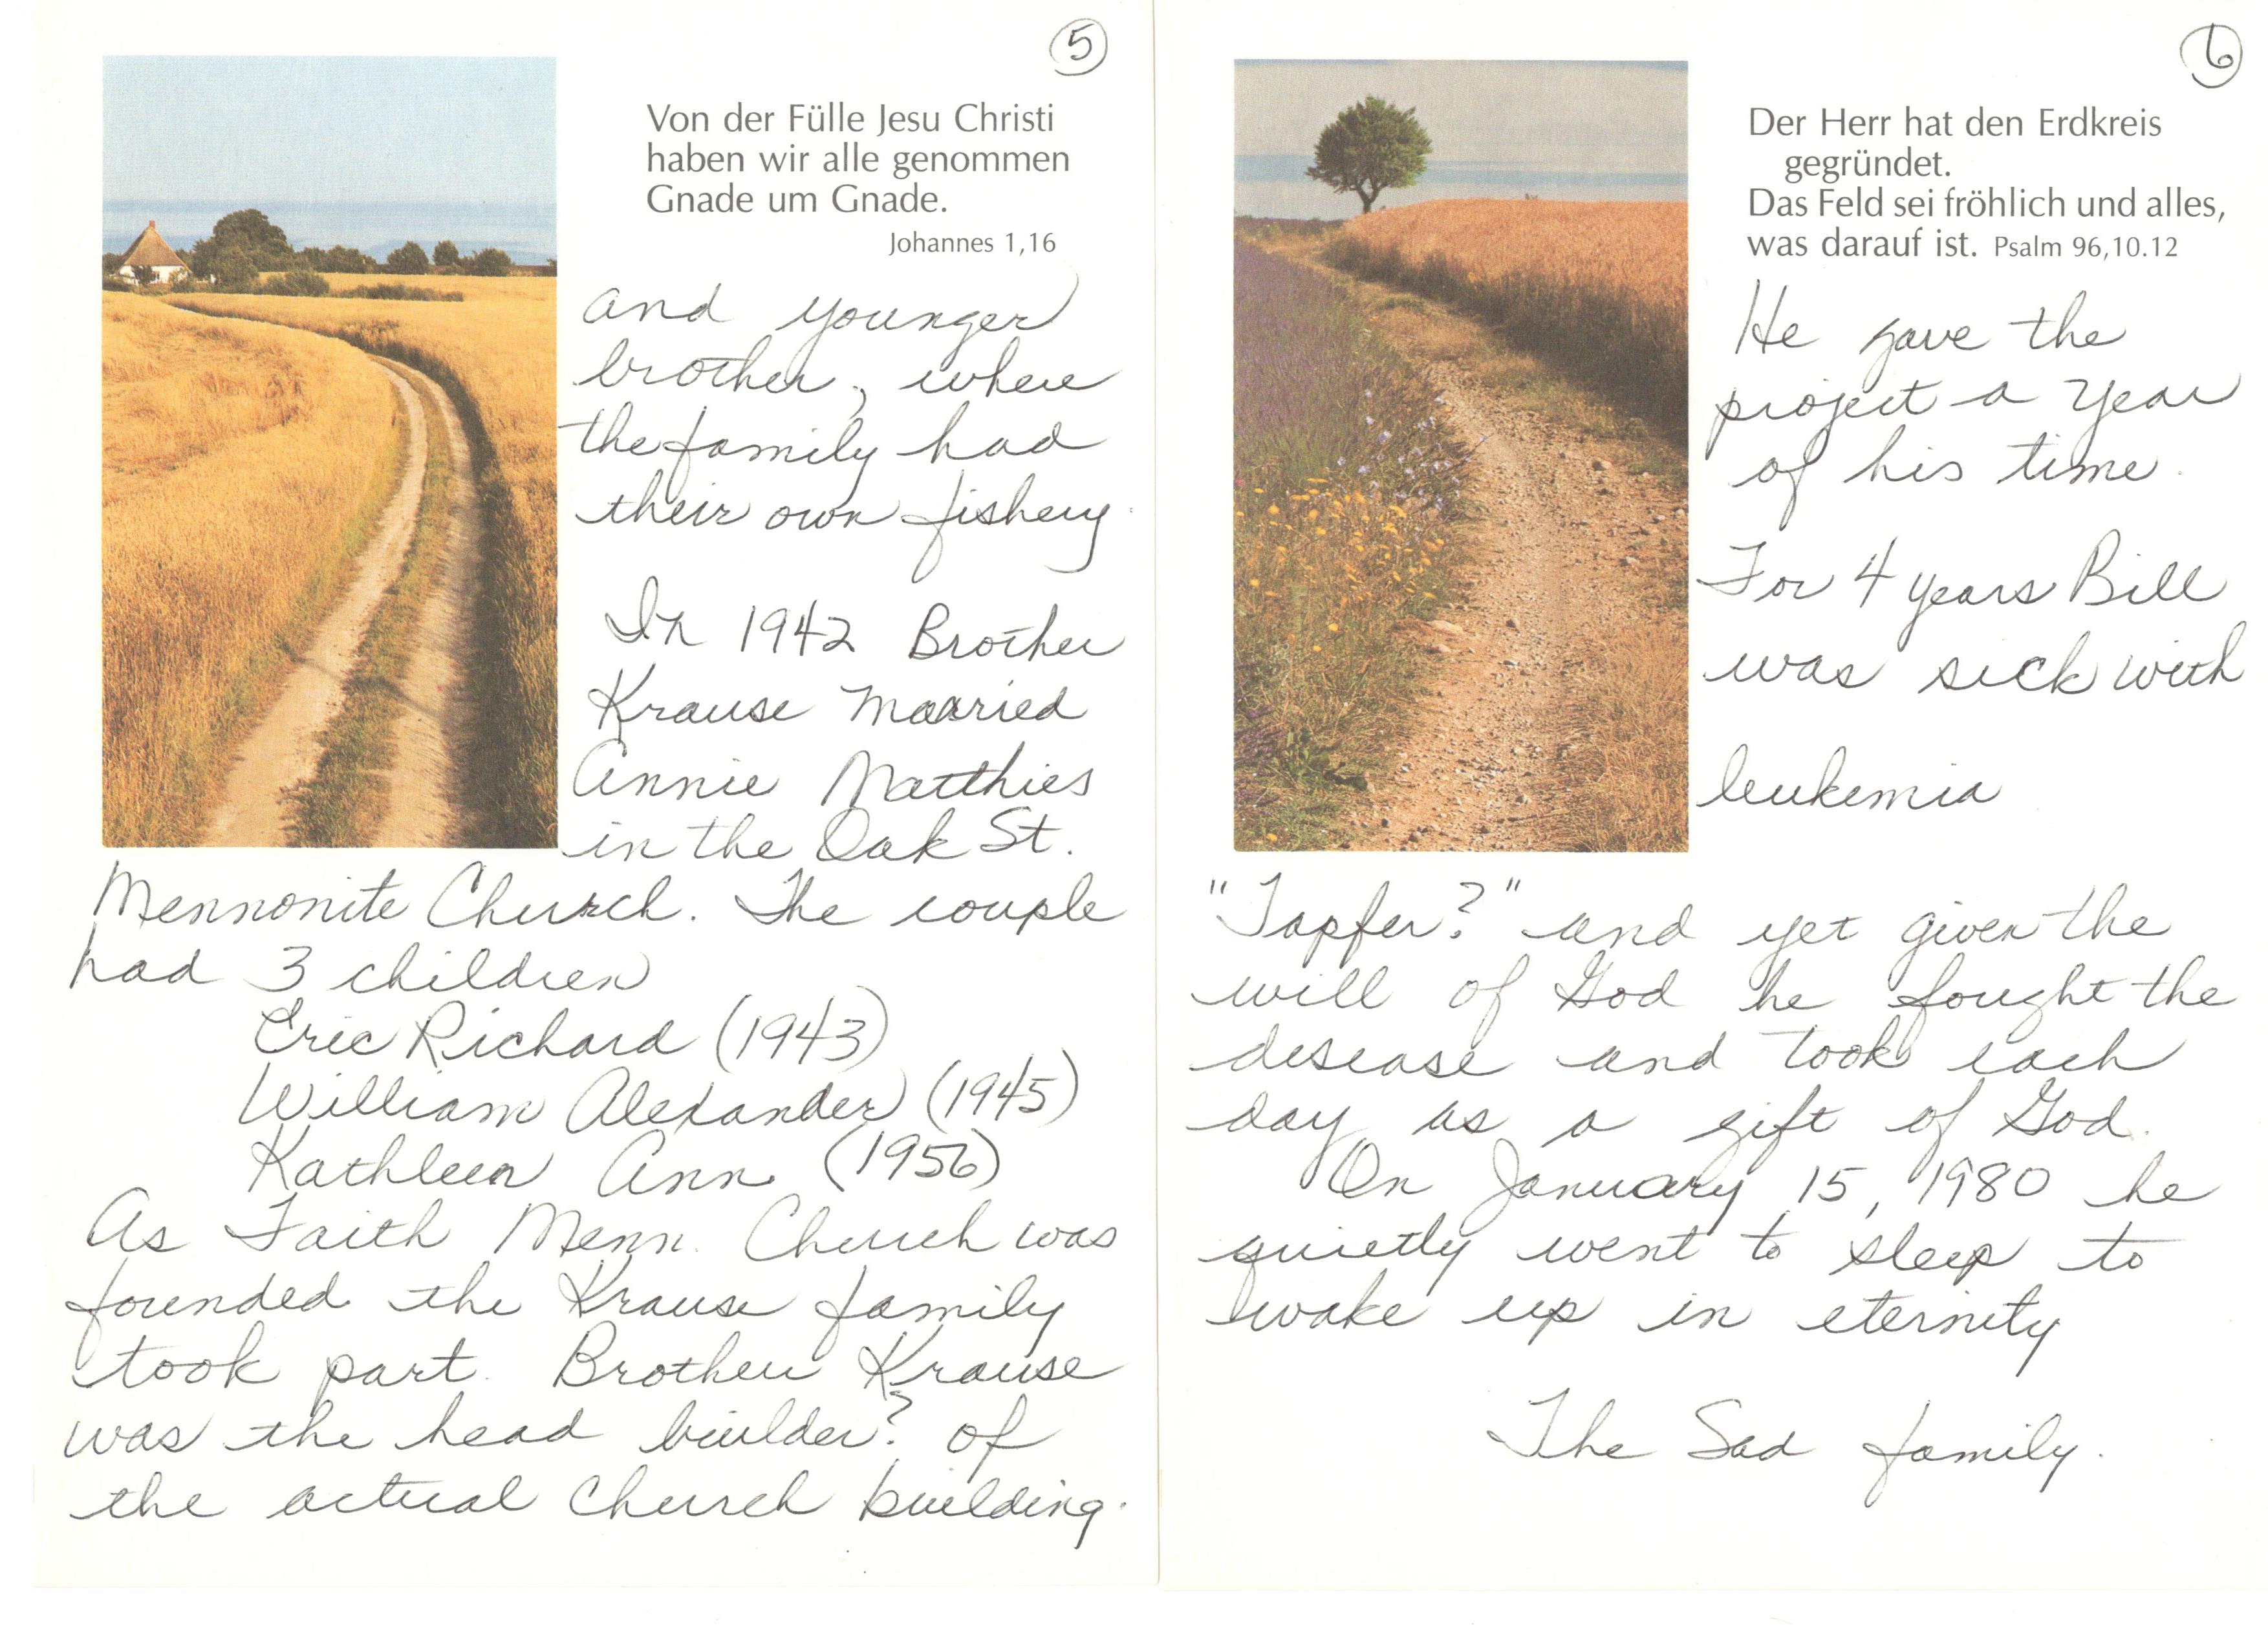 5
Von der Fülle Jesu Christi
haben wir alle genommen
Gnade um Gnade.
Johannes 1,16
and younger
brother, where
the family had
their own fishery.
In 1942 Brother
Krause maaried
Annie Matthies
in the Oak St.
Mennonite Church. The couple
had 3 children
Eric Richard (1943)
William Alexander (1945)
Kathleen Ann (1956)
As Faith Menn. Church was
founded the Krause family
took part. Brother Krause
was the head builder? of
the actual church building.
6
Der Herr hat den Erdkreis
gegründet.
Das Feld sei fröhlich und alles,
was darauf ist. Psalm 96,10.12
He gave the
project a year
of his time.
For 4 years Bill
was sick with
leukemia
"Tapfer?" and yet given the
will of God he fought the
disease and took each
day as a gift of God.
On January 15, 1980 he
quietly went to sleep to
wake up in eternity
The Sad family.